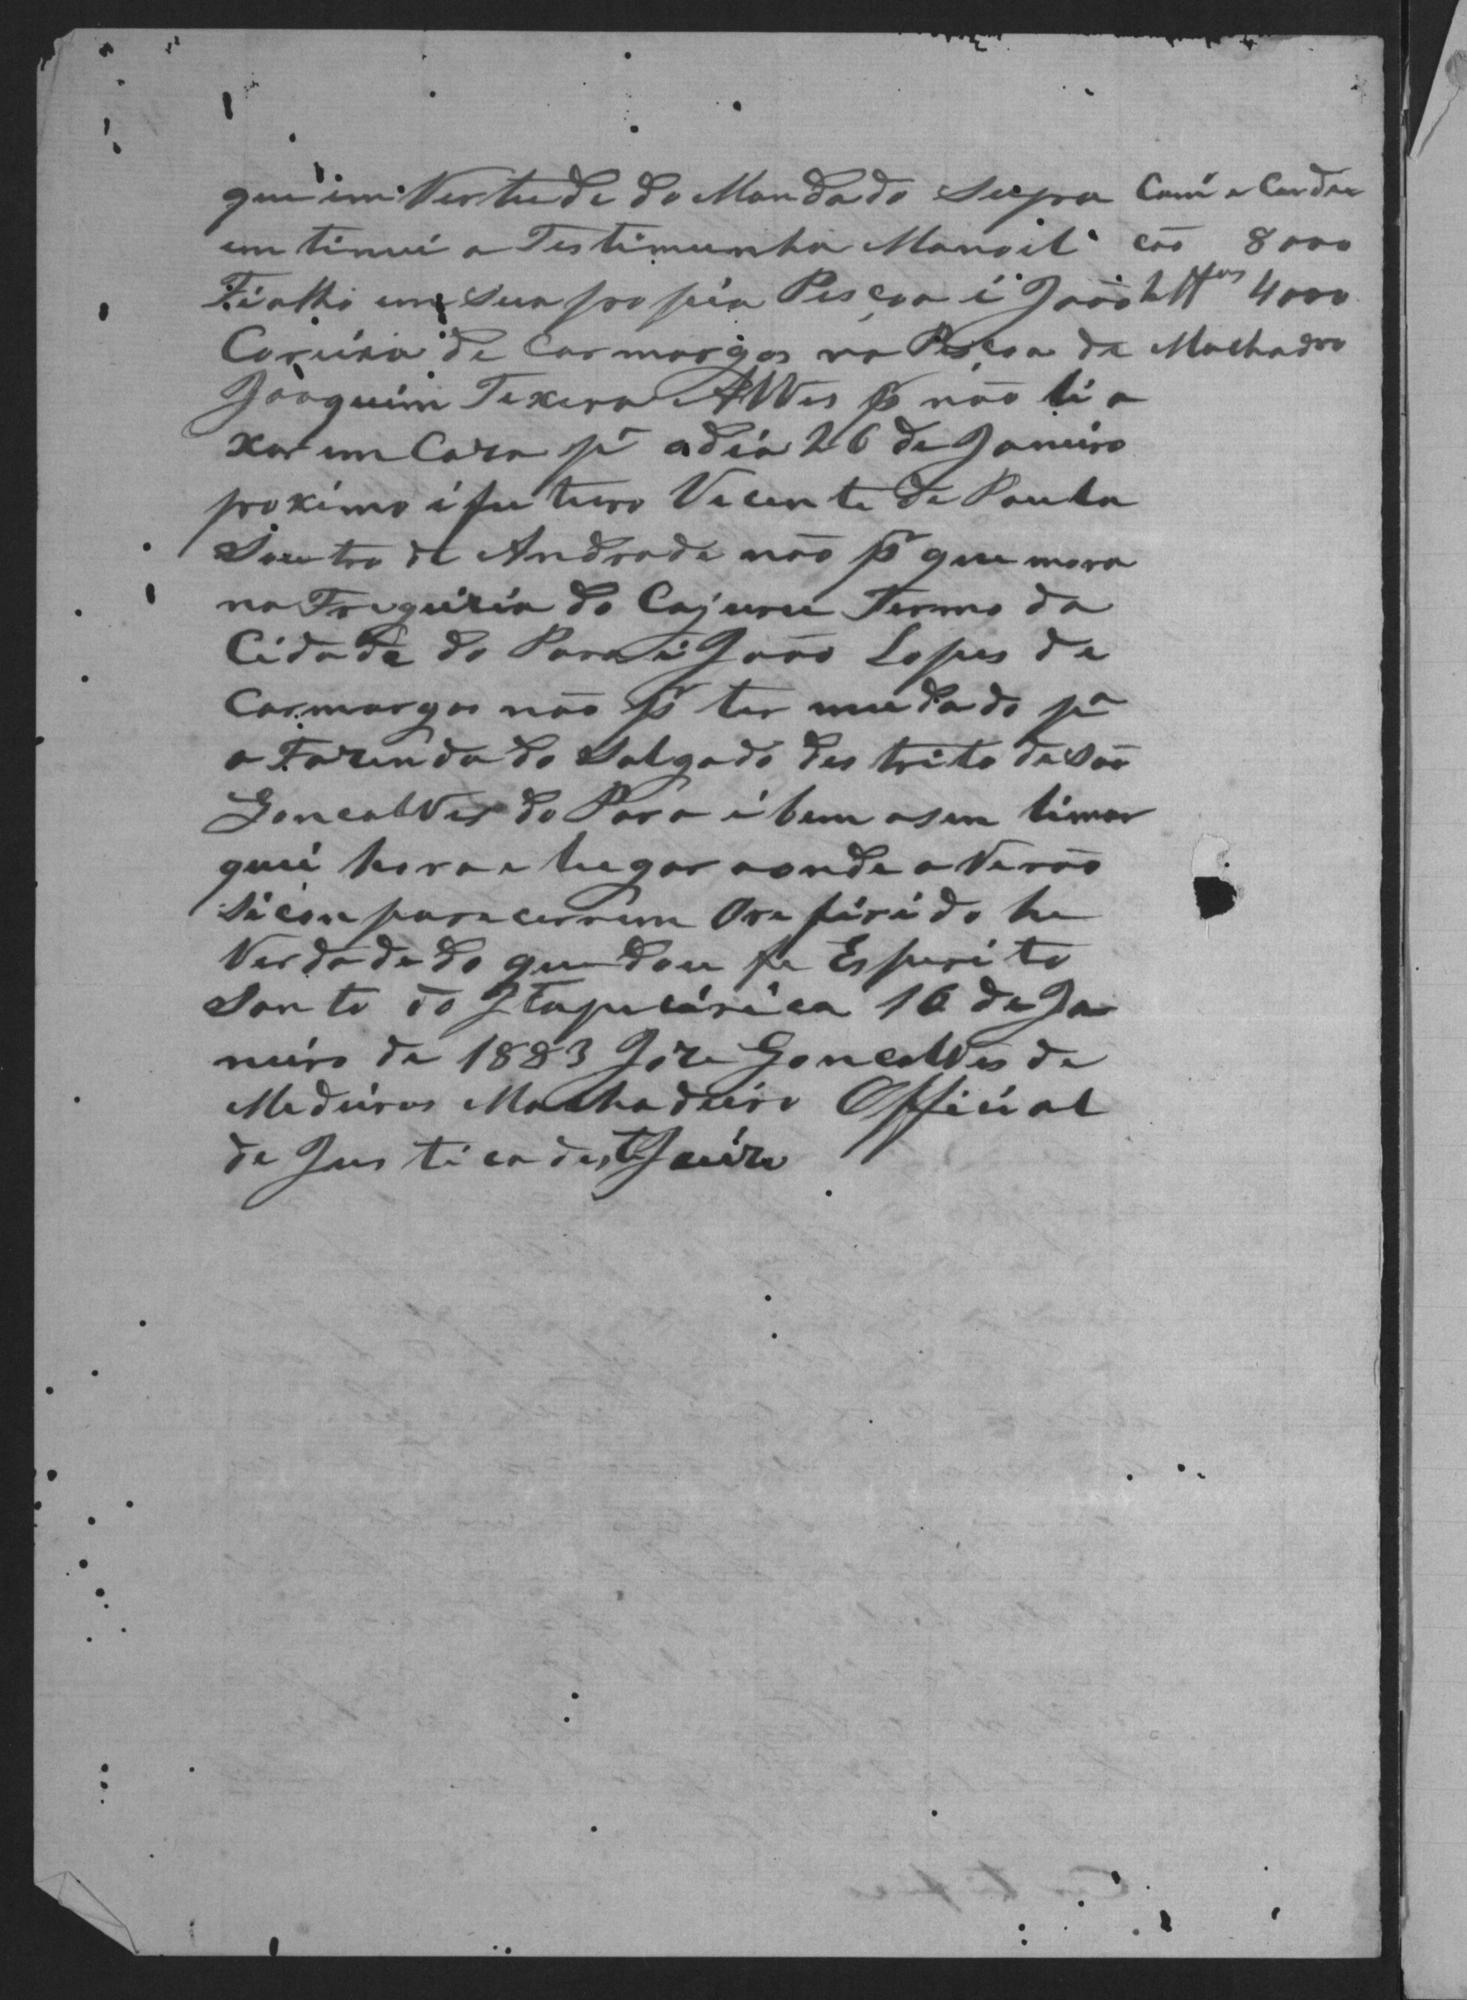 que im Vertude do Mandado Supra
em timei a Testimunha Manoil
Fialho em Sua propia Pescoa i João
de Carmargos na Pescoa de
Joaquim Texera Alves pr não li a
xar em Caza pa a dia 26 de Janeiro
proximo i futuro Vecente de Paula
Soutro de Andrade não pr que mora
na Freguizia do Cajuru Termo da
Cidade do Para i João Lopes de
Carmargos não pr ter mudado pa
a Fazenda do Salgado destrito de São
Goncalves do Para i bem asem timar
quei hora e lugar aonde a Verão
di comparecerem O re firido he
Verdade do que dou fe Espirito
Santo do Itapicirica 16 de Ja
neiro de 1883 Joze Goncalves de
Medeiros Machadeiro Official
de Justica deste Juize
Cam e Conduc
cão 8000
2 Hos 4000
Machadro